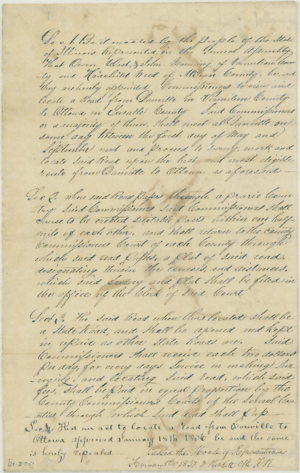 Sec 1 Be it enacted by the people of the State
of Illinois represented in the General Assembly,
That
of Vermilion Coun
ty and
of County, be and
they are hereby appointed Commissioners to view and
locate a Road from Danville in Vermilion County
to Ottawa in Lasalle County. Said Commissioners
or a majority of them shall meet at Danville on
some day between the first day of May and
September next and proceed to survey, mark and
locate said Road upon the best and most eligible
route from Danville to Ottawa as aforesaid
Sec 2. When said Road Passes through a prairie Coun
try Said Commissioners Said Commissioners shall
cause to be erected suitable Stakes within one half
mile of each other. and shall return to the County
Commissioners Court of each County through
which said road Passes, a plat of said road,
designating therein the courses, and distances,
which said survey and plat shall be filed in
the office of the Clerk of Said Court
Sec 3. The said Road when thus located shall be
a State Road, and shall be opened and kept
in repair as other State Roads are. Said
Commissioners shall receive each two dollars
Per day, for every days service in marking sur
veying, and locating Said Road, which said
shall be Paid in equal Proportions by the
County Commissioners Courts of the several Coun
ties through which said road shall Pass
Sec 4. That an act to locate a Road from Danville to
Ottawa approved January 18th 1836 be and the same
is hereby repealed
House of Representatives